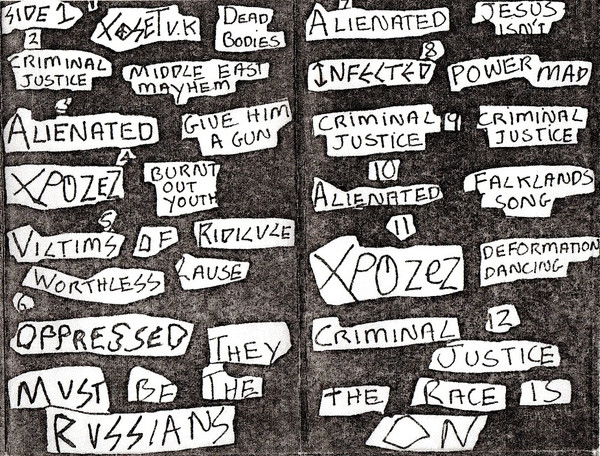 SIDE 1
DEAD
BODIES
2
CRIMINAL
JUSTICE
MIDDLE EAST
MAYHEM
ALIENATED
GIVE HIM
A GUN
4
XPOZEZ
BURNT
OUT
YOUTH
5
VICTIMS OF RIDICULE
WORTHLESS CAUSE
6
OPPRESSED THEY
MUST BE THE
RUSSIANS
ALIENATED
JESUS
ISN'T
8
INFECTED POWER MAD
CRIMINAL
JUSTICE
9
CRIMINAL
JUSTICE
10
ALIENATED
FALKLANDS
SONG
11
XPOZEZ
DEFORMATION
DANCING
12
CRIMINAL
JUSTICE
THE RACE IS
ON